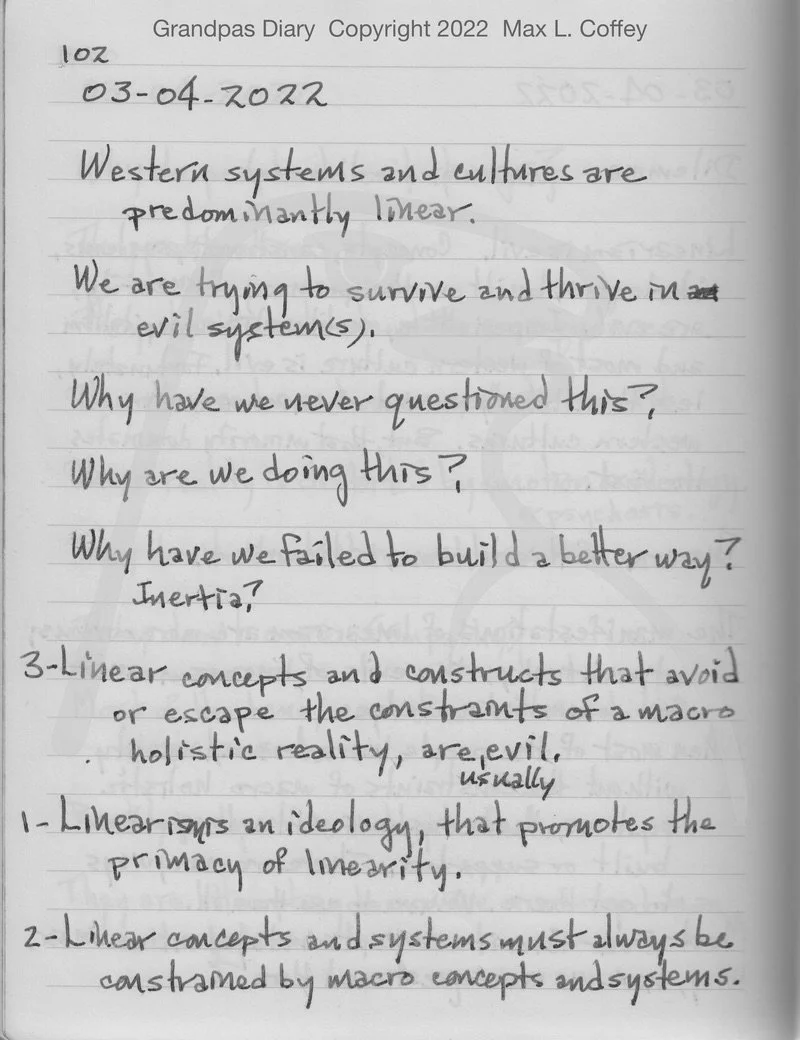 Grandpas Diary Copyright 2022 Max L. Coffey
102
03-04-2022
Western systems and cultures are
predominantly linear.
We are trying to survive and thrive in
evil system(s).
Why have we never questioned this?
Why are we doing this?
Why have we failed to build a better way?
Inertia?
3-Linear concepts and constructs that avoid
or escape the constraints of a macro
holistic reality, are evil.
usually
1-Linearism is an ideology, that promotes the
primacy of linearity.
2-Linear concepts and systems must always be
constrained by macro concepts and systems.